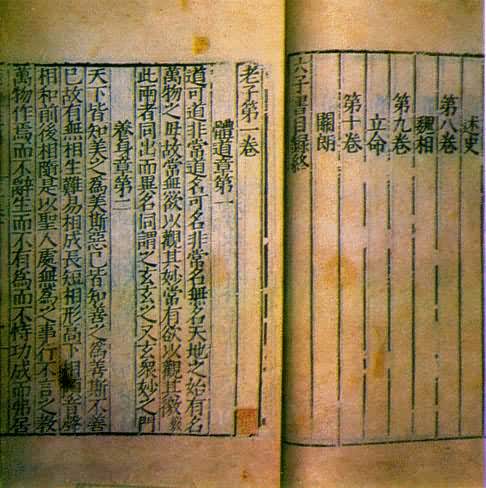 述史
第八卷
魏相
第九卷
立命
第十卷
關朗
六子書目錄終
老子第一卷
體道章第一
道可道非常道名可名非常名無名天地之始有名
萬物之母故常無欲以觀其妙常有欲以觀其徼
此兩者同出而異名同謂之玄玄之又玄衆妙之門
養身章第二
天下皆知美之為美斯惡已皆知善之為善斯不善
已故有無相生難易相成長短相形高下相傾音聲
相和前後相隨是以聖人處無為之事行不言之教
萬物作焉而不辭生而不有為而不恃功成而弗居